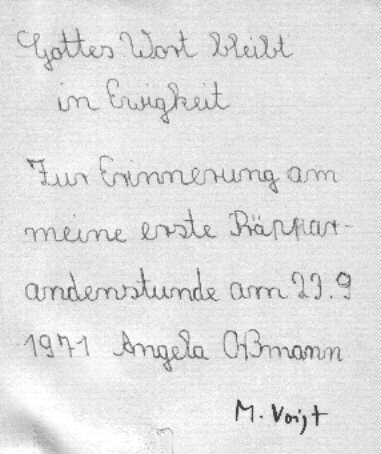 Gottes Wort bleibt
in Ewigkeit
Zur Erinnerung am
meine erste Räppar-
andenstunde am 29.9
1971 Angela Oßmann
M. Voigt